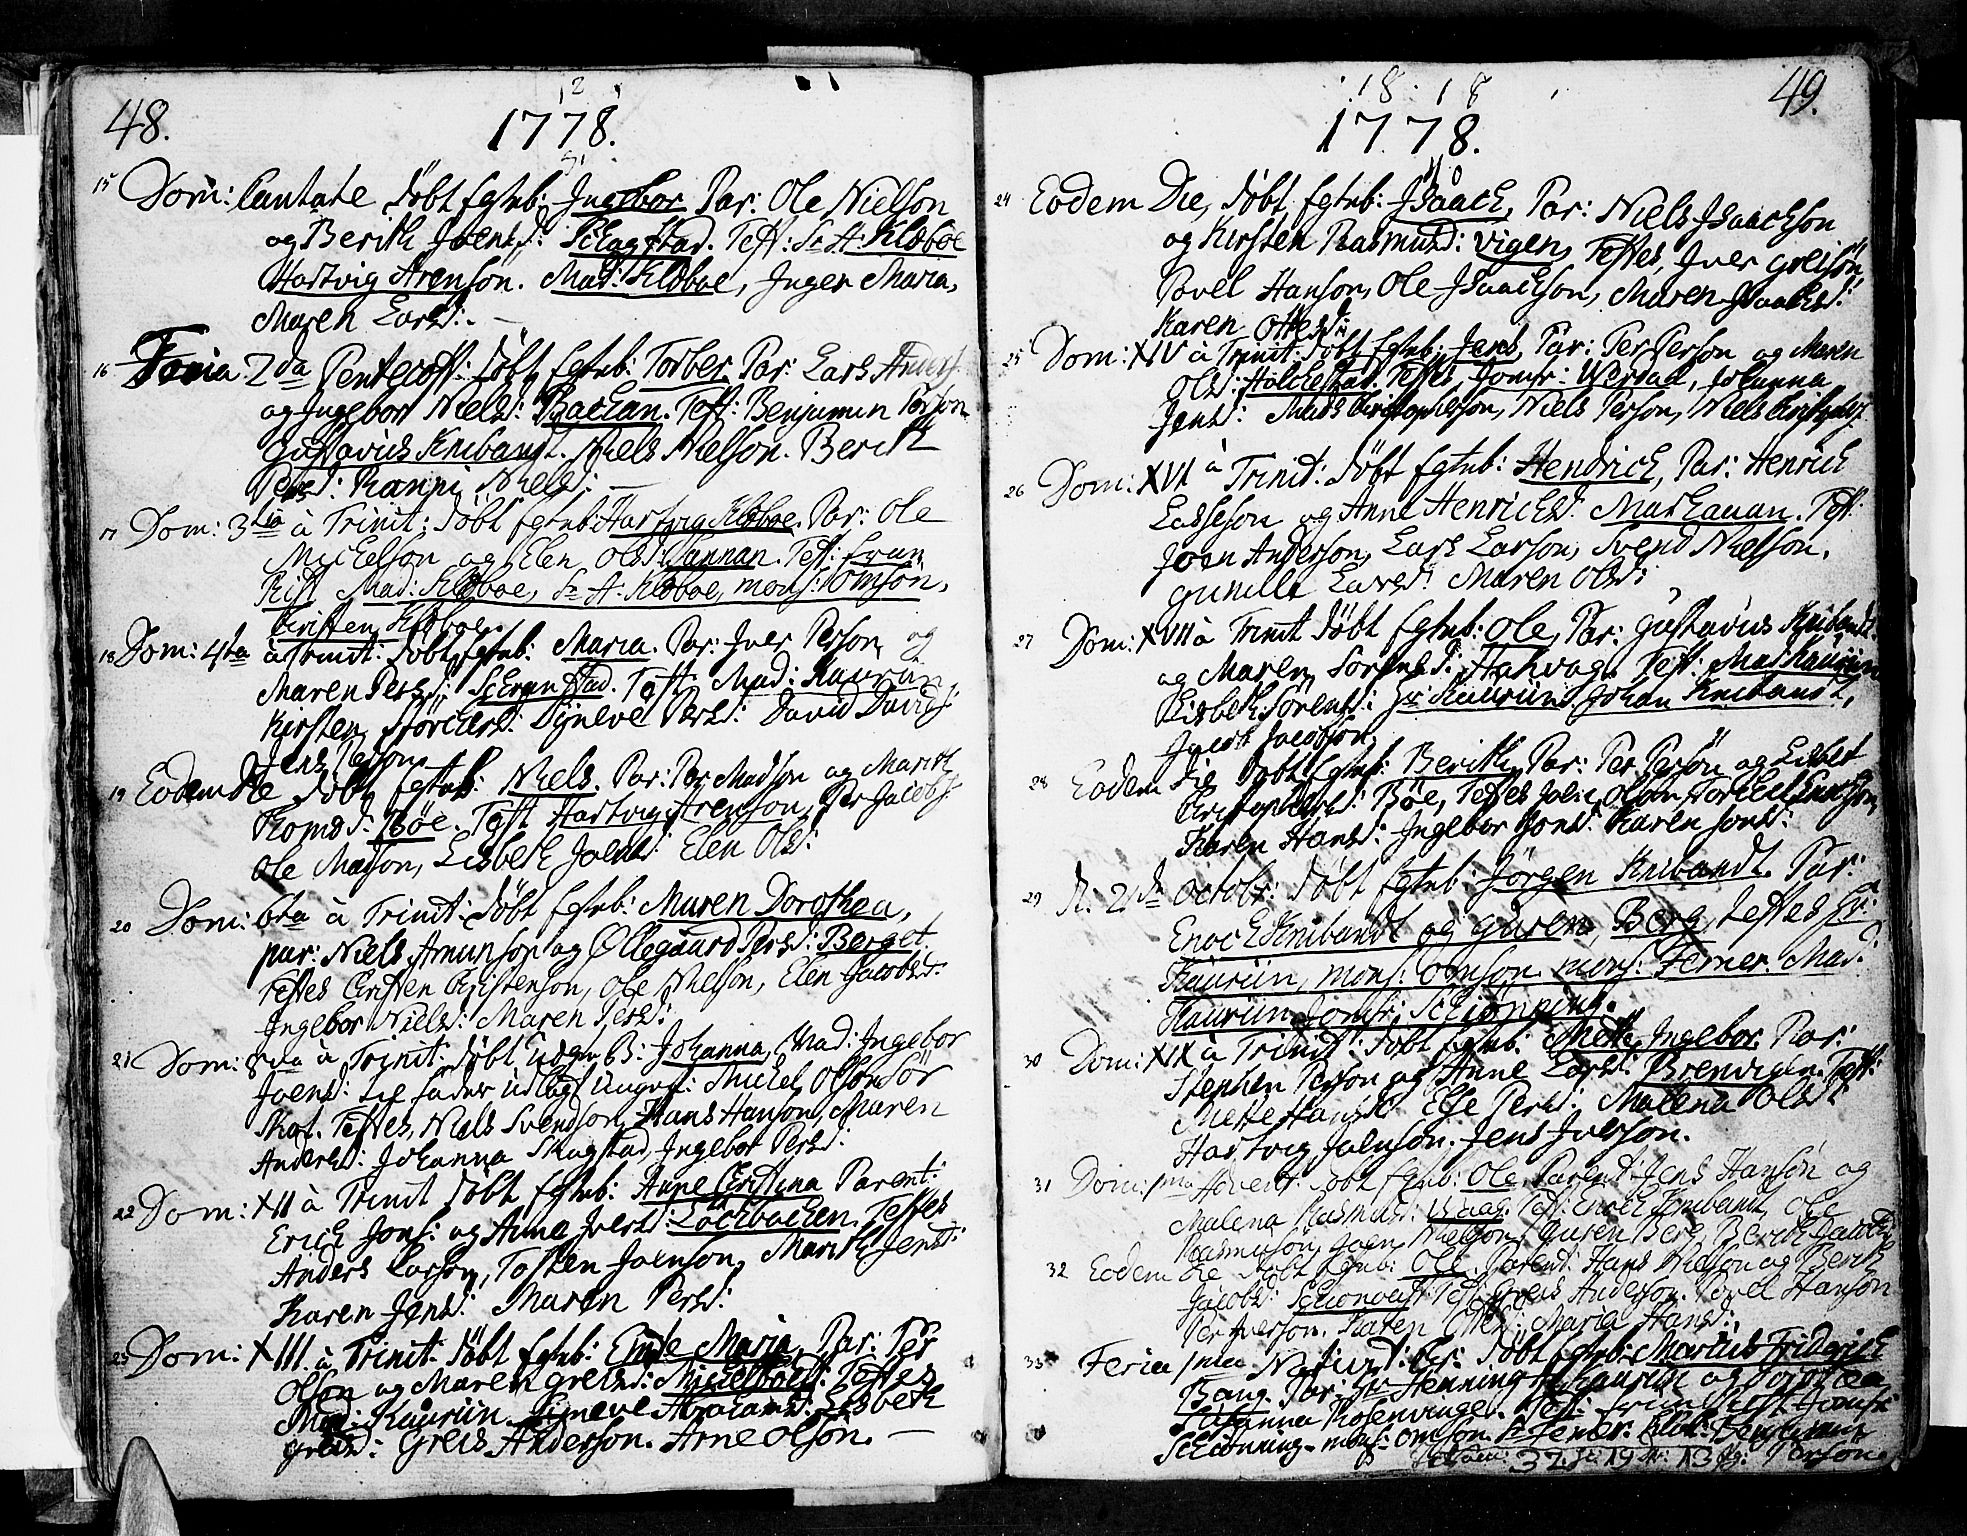 48.
1778.
15 Dom: Cantate Døbt Egtb: Ingebor Par: Ole Nielson
og Berith Joensd: Skagstad. Test: Sr A: Kloboe
Hartvig Arenson. Mad: Kloboe, Inger Maria,
Maren Larsd:
16 Feria 2da Pentecost: Døbt Egtb: Torber Par: Lars Anders
og Ingebor Nielsd: Backan. Test: Benjamin Person
Gustavius Knibandt. Niels Nielson. Berith
Persd: Ranni Nielsd:
17 Dom: 3tia à Trinit: Døbt Egtb: Hartvig Kloboe. Par: Ole
Mickelson og Elen Olsd: Sannan. Test: Frau
Rist Mad: Kloboe, Sr A: Kloboe, mons: Omsøn,
Cristen Kloboe.
18 Dom: 4ta à Trinit: Døbt Egtb: Maria. Par: Iver Person og
Maren Persd: Test: Mad: Kauriin
Kirsten Størckersd: Dyneve Persd: David Davids:
Jens Person
19 Eodem Die Døbt Egtb: Niels. Par: Per Madson og Marith
Tomesd: Bøe. Test Hartvig Arenson, Per Jacobs:
Ole Mason, Lisbeth Joensd: Elen Olsd:
20 Dom: 6ta à Trinit: Døbt Egtb: Maren Dorothea,
par: Niels Amunson og Ollegaard Persd: Berget.
Testes Cristen Cristenson, Ole Nielson, Elen Jacobsd:
Ingebor Nielsd: Maren Persd:
21 Dom: 8va à Trinit: Døbt uægt B: Johanna, Mad: Ingebor
Joensd: til fader udlagt ungk: Mickel Olson Sør
Testes, Niels Svendson, Hans Hanson, Maren
Andersd: Johanna Skagstad, Ingebor Persd:
22 Dom: XII à Trinit Døbt Egtb: Anne Cristina Parent:
Erick Jons: og Anne Iversd: Lockbacken. Testes
Anders Larson, Tosten Joenson, Marith Jensd:
Karen Jensd: Maren Persd:
23 Dom: XIII. à Trinit: Døbt Egtb: Maria, Par: Per
Olson og Maren Greisd: Testes
Mad: Kauriin. Abrahamsd: Lisbeth
Greisd: Greis Anderson. Arne Olson.
49.
1778.
24 Eodem Die, Døbt Egtb: Isaack, Par: Niels Isaackson
og Kirsten Rasmusd: Vigen, Testes, Iver Greisøn
Povel Hanson, Ole Isaackson, Maren Isaacksd:
Karen Ottesd:
25 Dom: XIV à Trinit: Døbt Egtb: Jens, Par: Per Person og Maren
Olsd: Holckestad. Testes, Jomfr: Werdal, Johanna
Jensd: Mads Cristopherson, Niels Person, Niels
26 Dom: XVI à Trinit: Døbt Egtb: Hendrick, Par: Henrick
Lasseson og Anne Henricksd: Marhauan. Test:
Joen Anderson, Lars Larson, Svend Nielson,
Gunille Larsd: Maren Olsd:
27 Dom: XVII à Trinit Døbt Egtb: Ole, Par: Gustavius Knibandt
og Maren Sørensd: Hahvag. Test: Mad Kauriin
Lisbeth Sørensd: Hr Kauriin. Johan Knibandt,
Jacobson
28 Eodem Die Døbt Egtb: Berith, Par: Per Persøn og Lisbet
Cristophersd: Bøe, Testes Joen Olson, Torckel
Karen Hansd: Ingebor Jonsd: Karen Jonsd:
29 D. 2dn Octobr: Døbt Egtb: Jørgen Knibandt. Par:
Enock Knibandt og Guren Berg, Testes Hr:
Kauriin, mons: Omsøn mons: Ferner. Mad:
Kauriin Jomfr: Schiønning.
30 Dom: XIX à Trinit: Døbt Egtb: Mette Ingebor. Par:
Stephen Person og Anne Larsd: Brenvigen. Test:
Mette Hansd: Else Persd: Malena Olsd:
Hartvig Joenson. Jens Iverson.
31 Dom: 1ma Advent: Døbt Egtb: Ole, Parent: Jens Hansøn og
Malena Rasmusd: Vaag. Test: Enock Knibandt, Ole
Rasmusøn, Joen Nielson, Guren Berg, Berith Jacobsd:
32 Eodem Die Døbt Egtb: Ole. Parent: Hans Nielson og Berith
Jacobsd: Test: Greis Anderson. Povel Hanson
Per Iverson. Karen Ottesd: Maria Hansd:
33 Feria 1ma Nativit: Cr: Døbt Egtb: Marcus Fridrick
Bang. Par: Hr Henning Kauriin og Dorothea
Susanna Rosenvinge. Test: Frau Rist Jomfr:
Schiønning. mons: Omson. Sr Ferner. Klok: Benjamin
32 19 13 Person